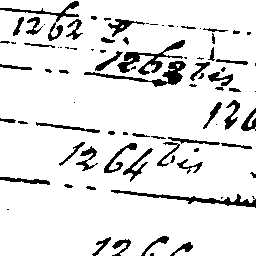 1262 P.
1263 bis
126
1264 bis
1266